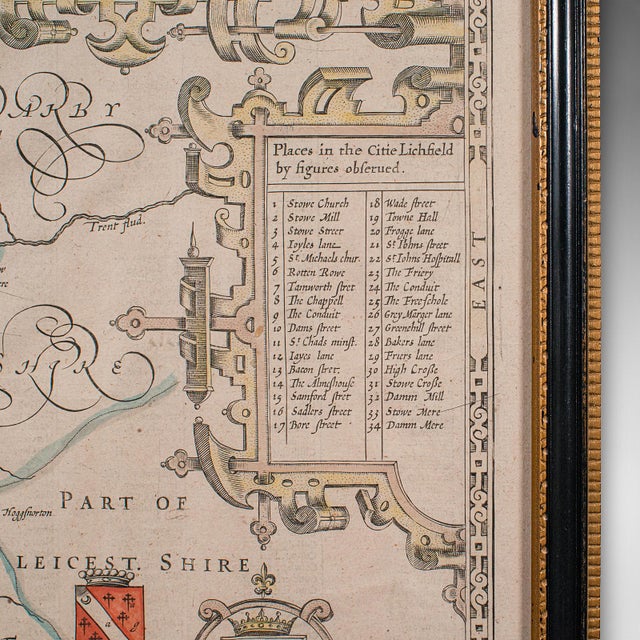 DARBY
Trent flud.
SHIRE
Hoggsnorton
PART OF
LEICEST. SHIRE
EAST
Places in the Citie Lichfield
by figures obserued.
1 Stowe Church
2 Stowe Mill
3 Stowe Street
4 Ioyles lane
5 St. Michaels chur.
6 Rotten Rowe
7 Tamworth stret
8 The Chappell
9 The Conduit
10 Dams street
11 St. Chads minst.
12 Iayes lane
13 Bacon stret
14 The Almeshouse
15 Samford stret
16 Sadlers street
17 Bore street
18 Wade street
19 Towne Hall
20 Frogge lane
21 St. Iohns street
22 St. Iohns Hospitall
23 The Friery
24 The Conduit
25 The Freeschole
26 Grey Marger lane
27 Greenehill street
28 Bakers lane
29 Friers lane
30 High Crosse
31 Stowe Crosse
32 Damm Mill
33 Stowe Mere
34 Damm Mere